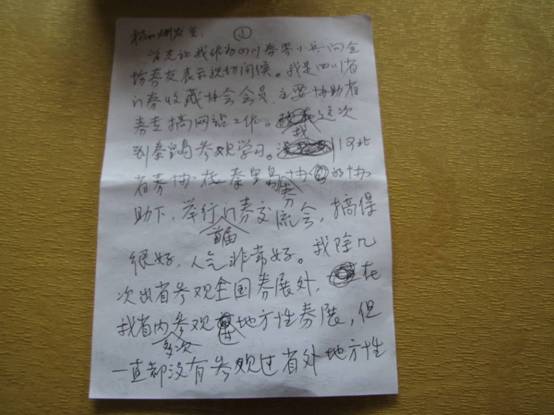 ①
首先让我作为四川券界小兵问全
体券友表示亲切问候。我是四川省
门券收藏协会会员,主要协助省
券查搞网站工作。我这次
到秦皇岛参观学习。河北
省券协在秦皇岛券协的协
助下,举行首届门券交流会,搞得
很好,人气非常好。我除几
次出省参观全国券展外,在
我省内多次参观地方性券展,但
一直都没有参观过省外地方性